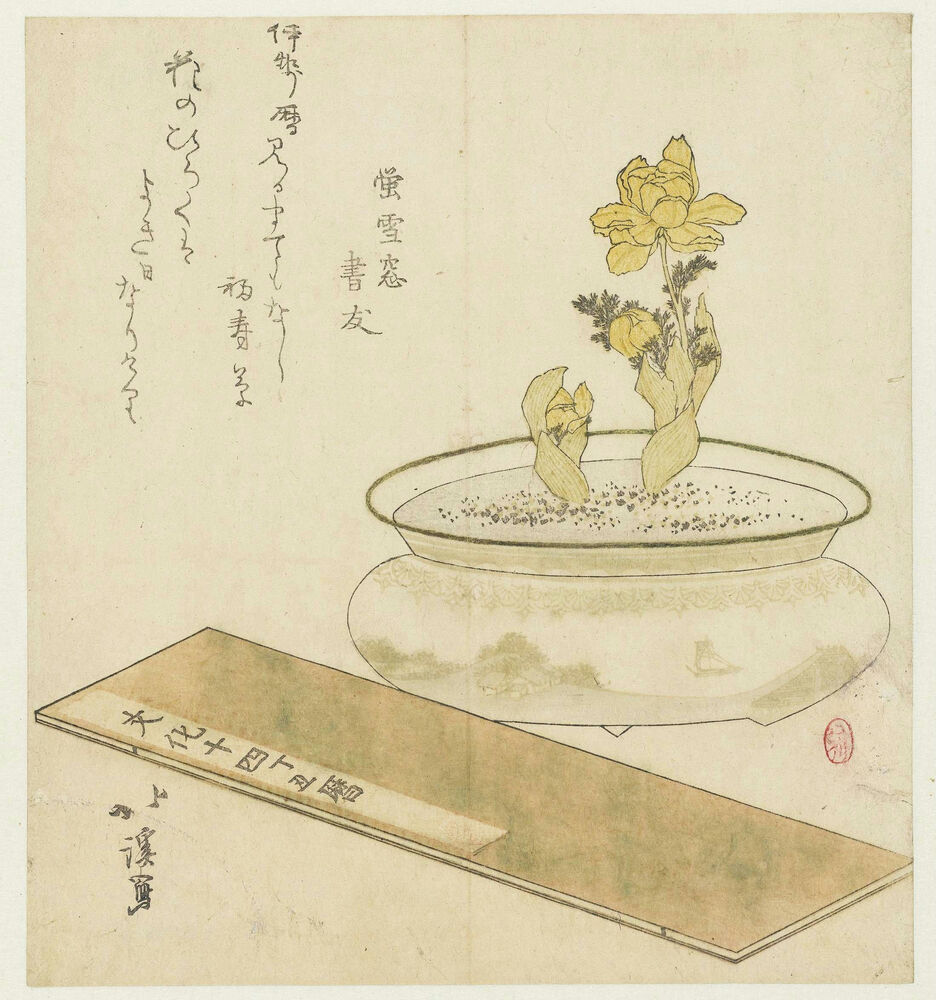 蛍雪窓
書友
伊勢暦
見るまてもなし
福寿草
花のひらくは
よき日
なりけり
文化十四丁丑暦
北溪写